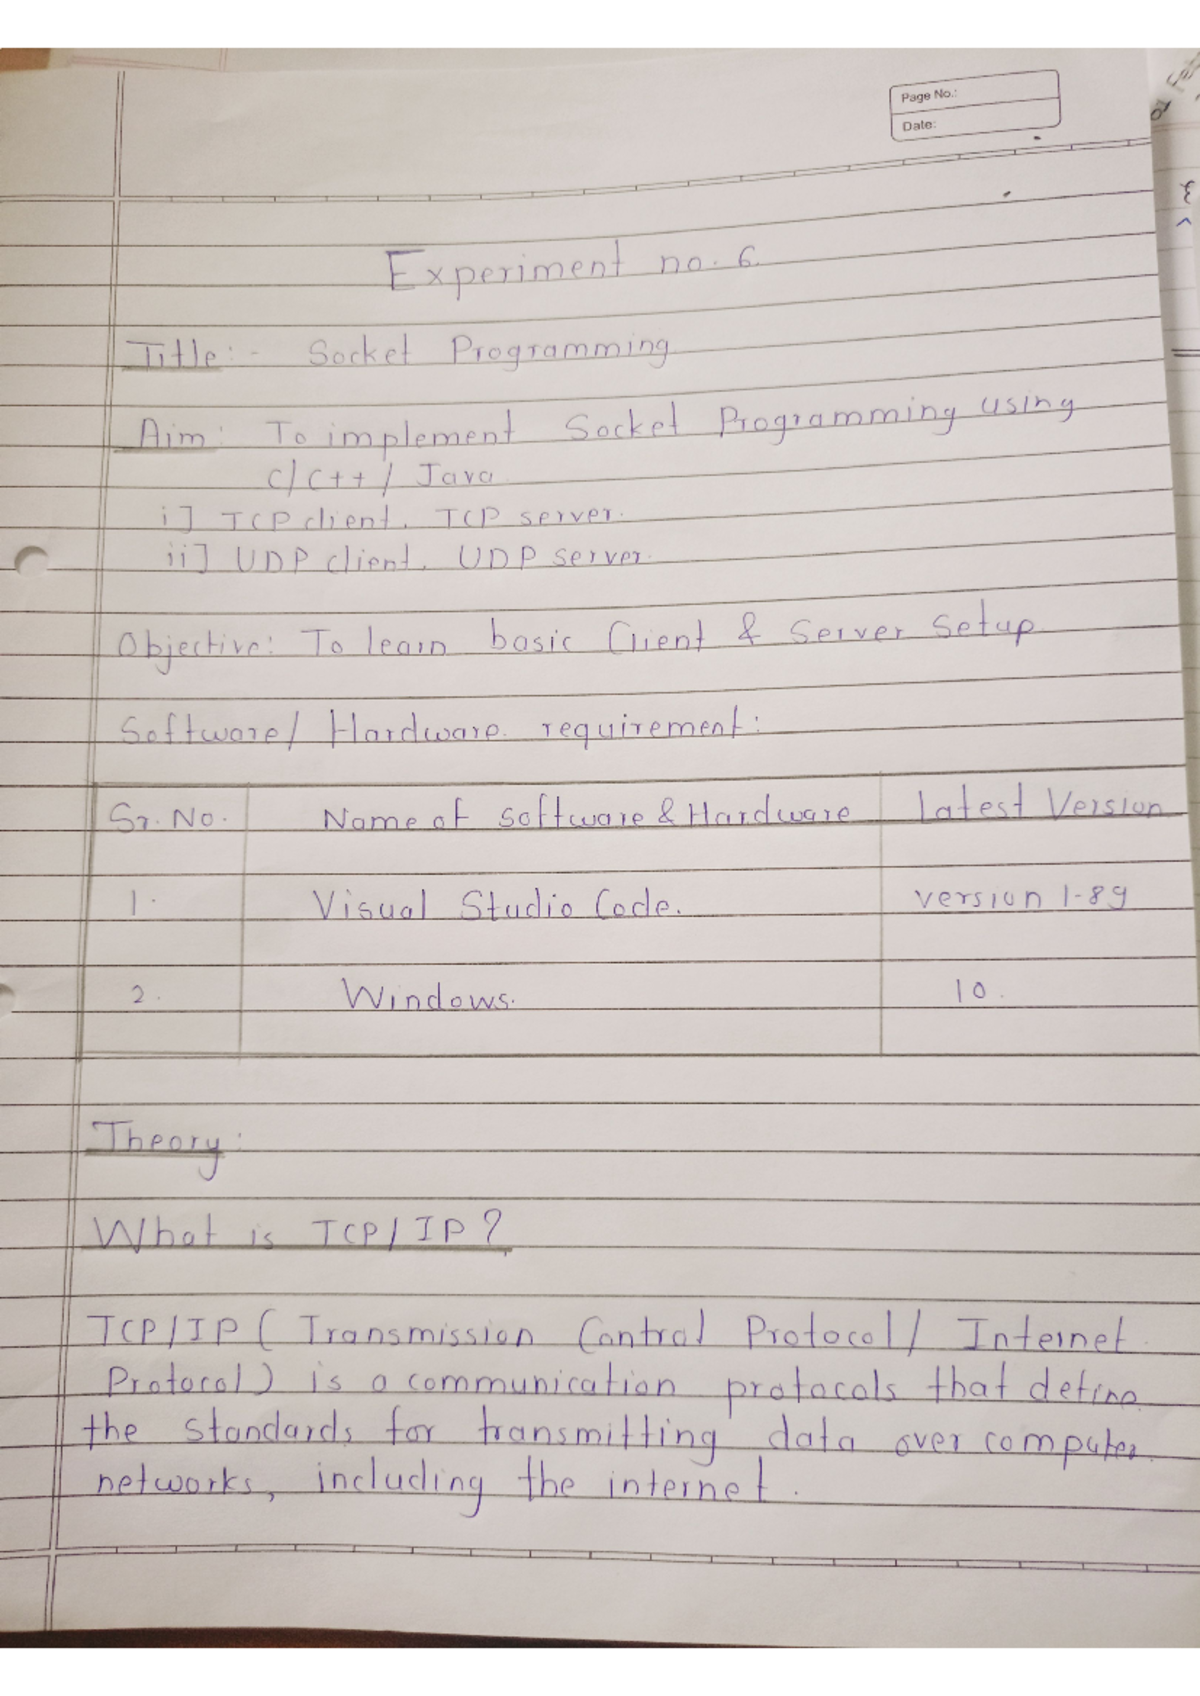 Page No.:
Date:
Experiment no. 6
Title:- Socket Programming
Aim: To implement Socket Programming using
C/C++/Java
i] TCP client, TCP server.
ii] UDP client, UDP server.
Objective: To learn basic Client & Server Setup
Software/ Hardware requirement:
Sr. No. Name of Software & Hardware Latest Version
1. Visual Studio Code. version 1.89
2. Windows. 10.
Theory:
What is TCP/IP?
TCP/IP (Transmission Control Protocol/ Internet
Protocol) is a communication protocols that define
the standards for transmitting data over computer
networks, including the internet.